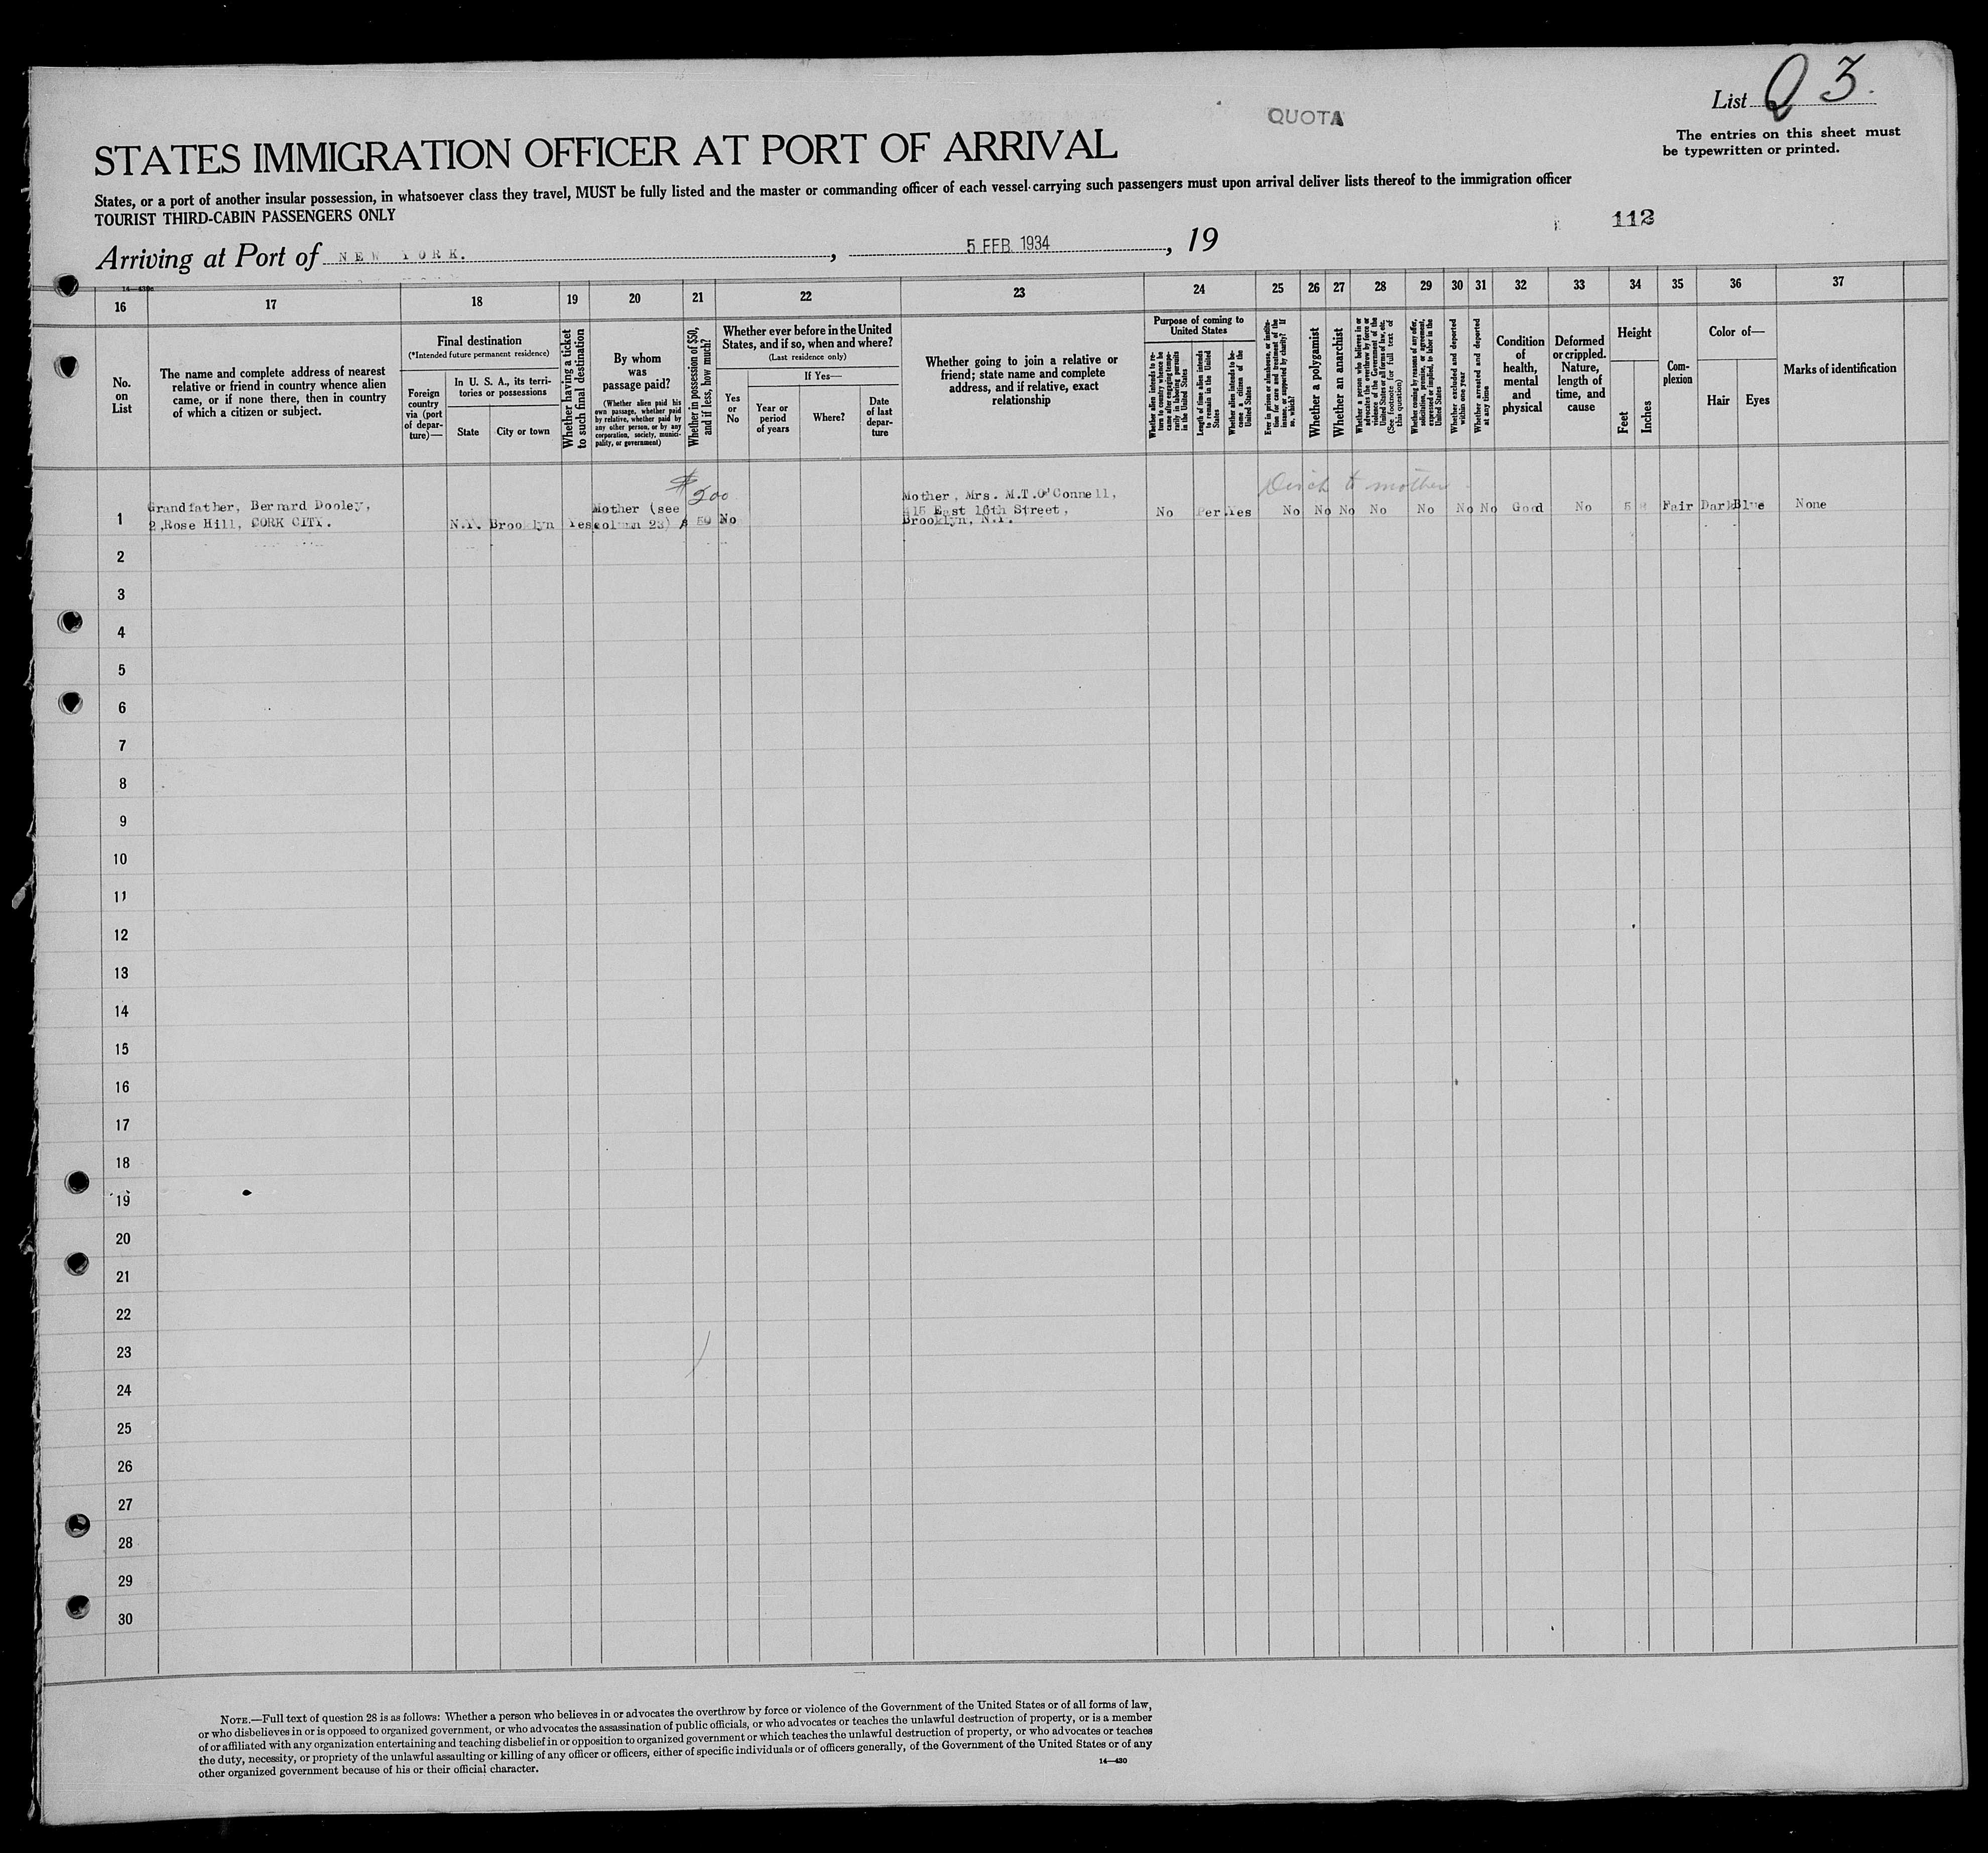 List Q 3.
QUOTA
The entries on this sheet must
be typewritten or printed.
STATES IMMIGRATION OFFICER AT PORT OF ARRIVAL
States, or a port of another insular possession, in whatsoever class they travel, MUST be fully listed and the master or commanding officer of each vessel carrying such passengers must upon arrival deliver lists thereof to the immigration officer
TOURIST THIRD-CABIN PASSENGERS ONLY
112
Arriving at Port of NEW YORK. , 5 FEB. 1934 , 19
16 17 18 19 20 21 22 23 24 25 26 27 28 29 30 31 32 33 34 35 36 37
No.
on
List
The name and complete address of nearest
relative or friend in country whence alien
came, or if none there, then in country
of which a citizen or subject.
Final destination
(*Intended future permanent residence)
Foreign
country
via (port
of depar-
ture)—
In U. S. A., its terri-
tories or possessions
State
City or town
Whether having a ticket
to such final destination
By whom
was
passage paid?
(Whether alien paid his
own passage, whether paid
by relative, whether paid by
any other person, or by any
corporation, society, munici-
pality, or government)
Whether in possession of $50,
and if less, how much?
Whether ever before in the United
States, and if so, when and where?
(Last residence only)
Yes
or
No
If Yes—
Year or
period
of years
Where?
Date
of last
depar-
ture
Whether going to join a relative or
friend; state name and complete
address, and if relative, exact
relationship
Purpose of coming to
United States
Whether alien intends to re-
turn to country whence he
came after engaging tempo-
rarily in laboring pursuits
in the United States
Length of time alien intends
to remain in the United
States
Whether alien intends to be-
come a citizen of the
United States
Ever in prison or almshouse, or institu-
tion for care and treatment of the
insane, or supported by charity? If
so, which?
Whether a polygamist
Whether an anarchist
Whether a person who believes in or
advocates the overthrow by force or
violence of the Government of the
United States or all forms of law, etc.
(See footnote for full text of
this question)
Whether coming by reasons of any offer,
solicitation, promise, or agreement,
expressed or implied, to labor in the
United States
Whether excluded and deported
within one year
Whether arrested and deported
at any time
Condition
of
health,
mental
and
physical
Deformed
or crippled.
Nature,
length of
time, and
cause
Height
Feet
Inches
Com-
plexion
Color of—
Hair
Eyes
Marks of identification
$200
to mother
1 Grandfather, Bernard Dooley,
2,Rose Hill, CORK CITY.
N.Y. Brooklyn Yes
Mother (see
column 23)
50 No
Mother, Mrs. M.T.O'Connell,
415 East 16th Street,
Brooklyn, N.Y.
No Per. Yes No No No No No No No Good No 5 Fair Dark Blue None
2
3
4
5
6
7
8
9
10
11
12
13
14
15
16
17
18
19
20
21
22
23
24
25
26
27
28
29
30
NOTE.—Full text of question 28 is as follows: Whether a person who believes in or advocates the overthrow by force or violence of the Government of the United States or of all forms of law,
or who disbelieves in or is opposed to organized government, or who advocates the assassination of public officials, or who advocates or teaches the unlawful destruction of property, or is a member
of or affiliated with any organization entertaining and teaching disbelief in or opposition to organized government or which teaches the unlawful destruction of property, or who advocates or teaches
the duty, necessity, or propriety of the unlawful assaulting or killing of any officer or officers, either of specific individuals or of officers generally, of the Government of the United States or of any
other organized government because of his or their official character.
14—430